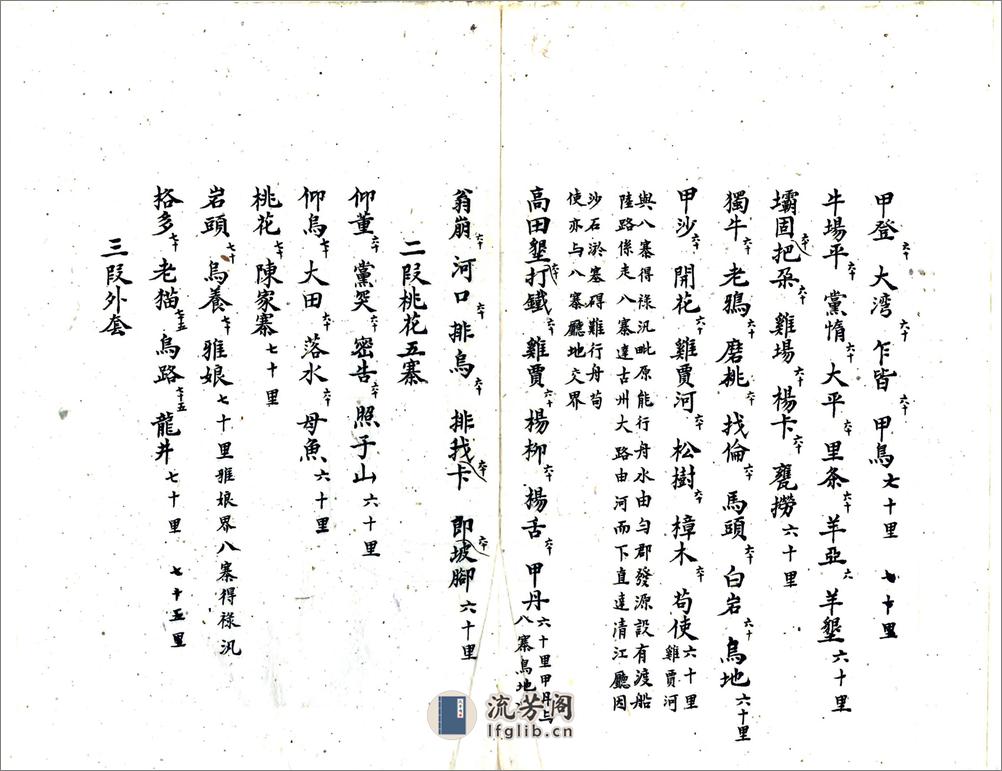 甲登六十 大湾六十 乍皆六十 甲鳥七十里 七十里
牛場平六十 黨惰六十 大平六十 里条六十 羊亞六 羊墾六十里
壩固把朶六十 雞場六十 楊卡六十 甕撈六十里
獨牛六十 老鴉六十 磨桃六十 找倫六十 馬頭六十 白岩六十 烏地六十里
甲沙六十 開花六十 雞賈河六十 松樹六十 樟木六十 苟使六十里雞賈河
與八寨得祿汛毗原能行舟水由匀郡發源設有渡船
陸路係走八寨達古州大路由河而下直達清江廳因
沙石淤塞碍難行舟苟
使亦与八寨廳地交界
高田墾打鐵六十 雞賈六十 楊柳六十 揚舌六十 甲丹六十里甲丹与
八寨烏地
翁崩六十 河口六十 排烏六十 排找卡六十 即坡腳六十里
二段桃花五寨
仰董六十 黨哭六十 密告六十 照于山六十里
仰烏七十 大田六十 落水六十 母魚六十里
桃花七十 陳家寨七十里
岩頭七十 烏養七十 雅娘七十里雅娘界八寨得祿汛
挌多七十 老猫七十五 烏路七十五 龍井七十里 七十五里
三段外套
流芳阁
lfglib.cn